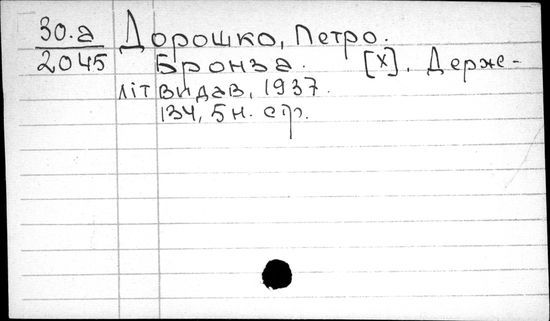 30.а Дорошко, Петро.
2045 Бронза. [х]. Держе-
літвидав, 1937.
134, 5 н. стр.